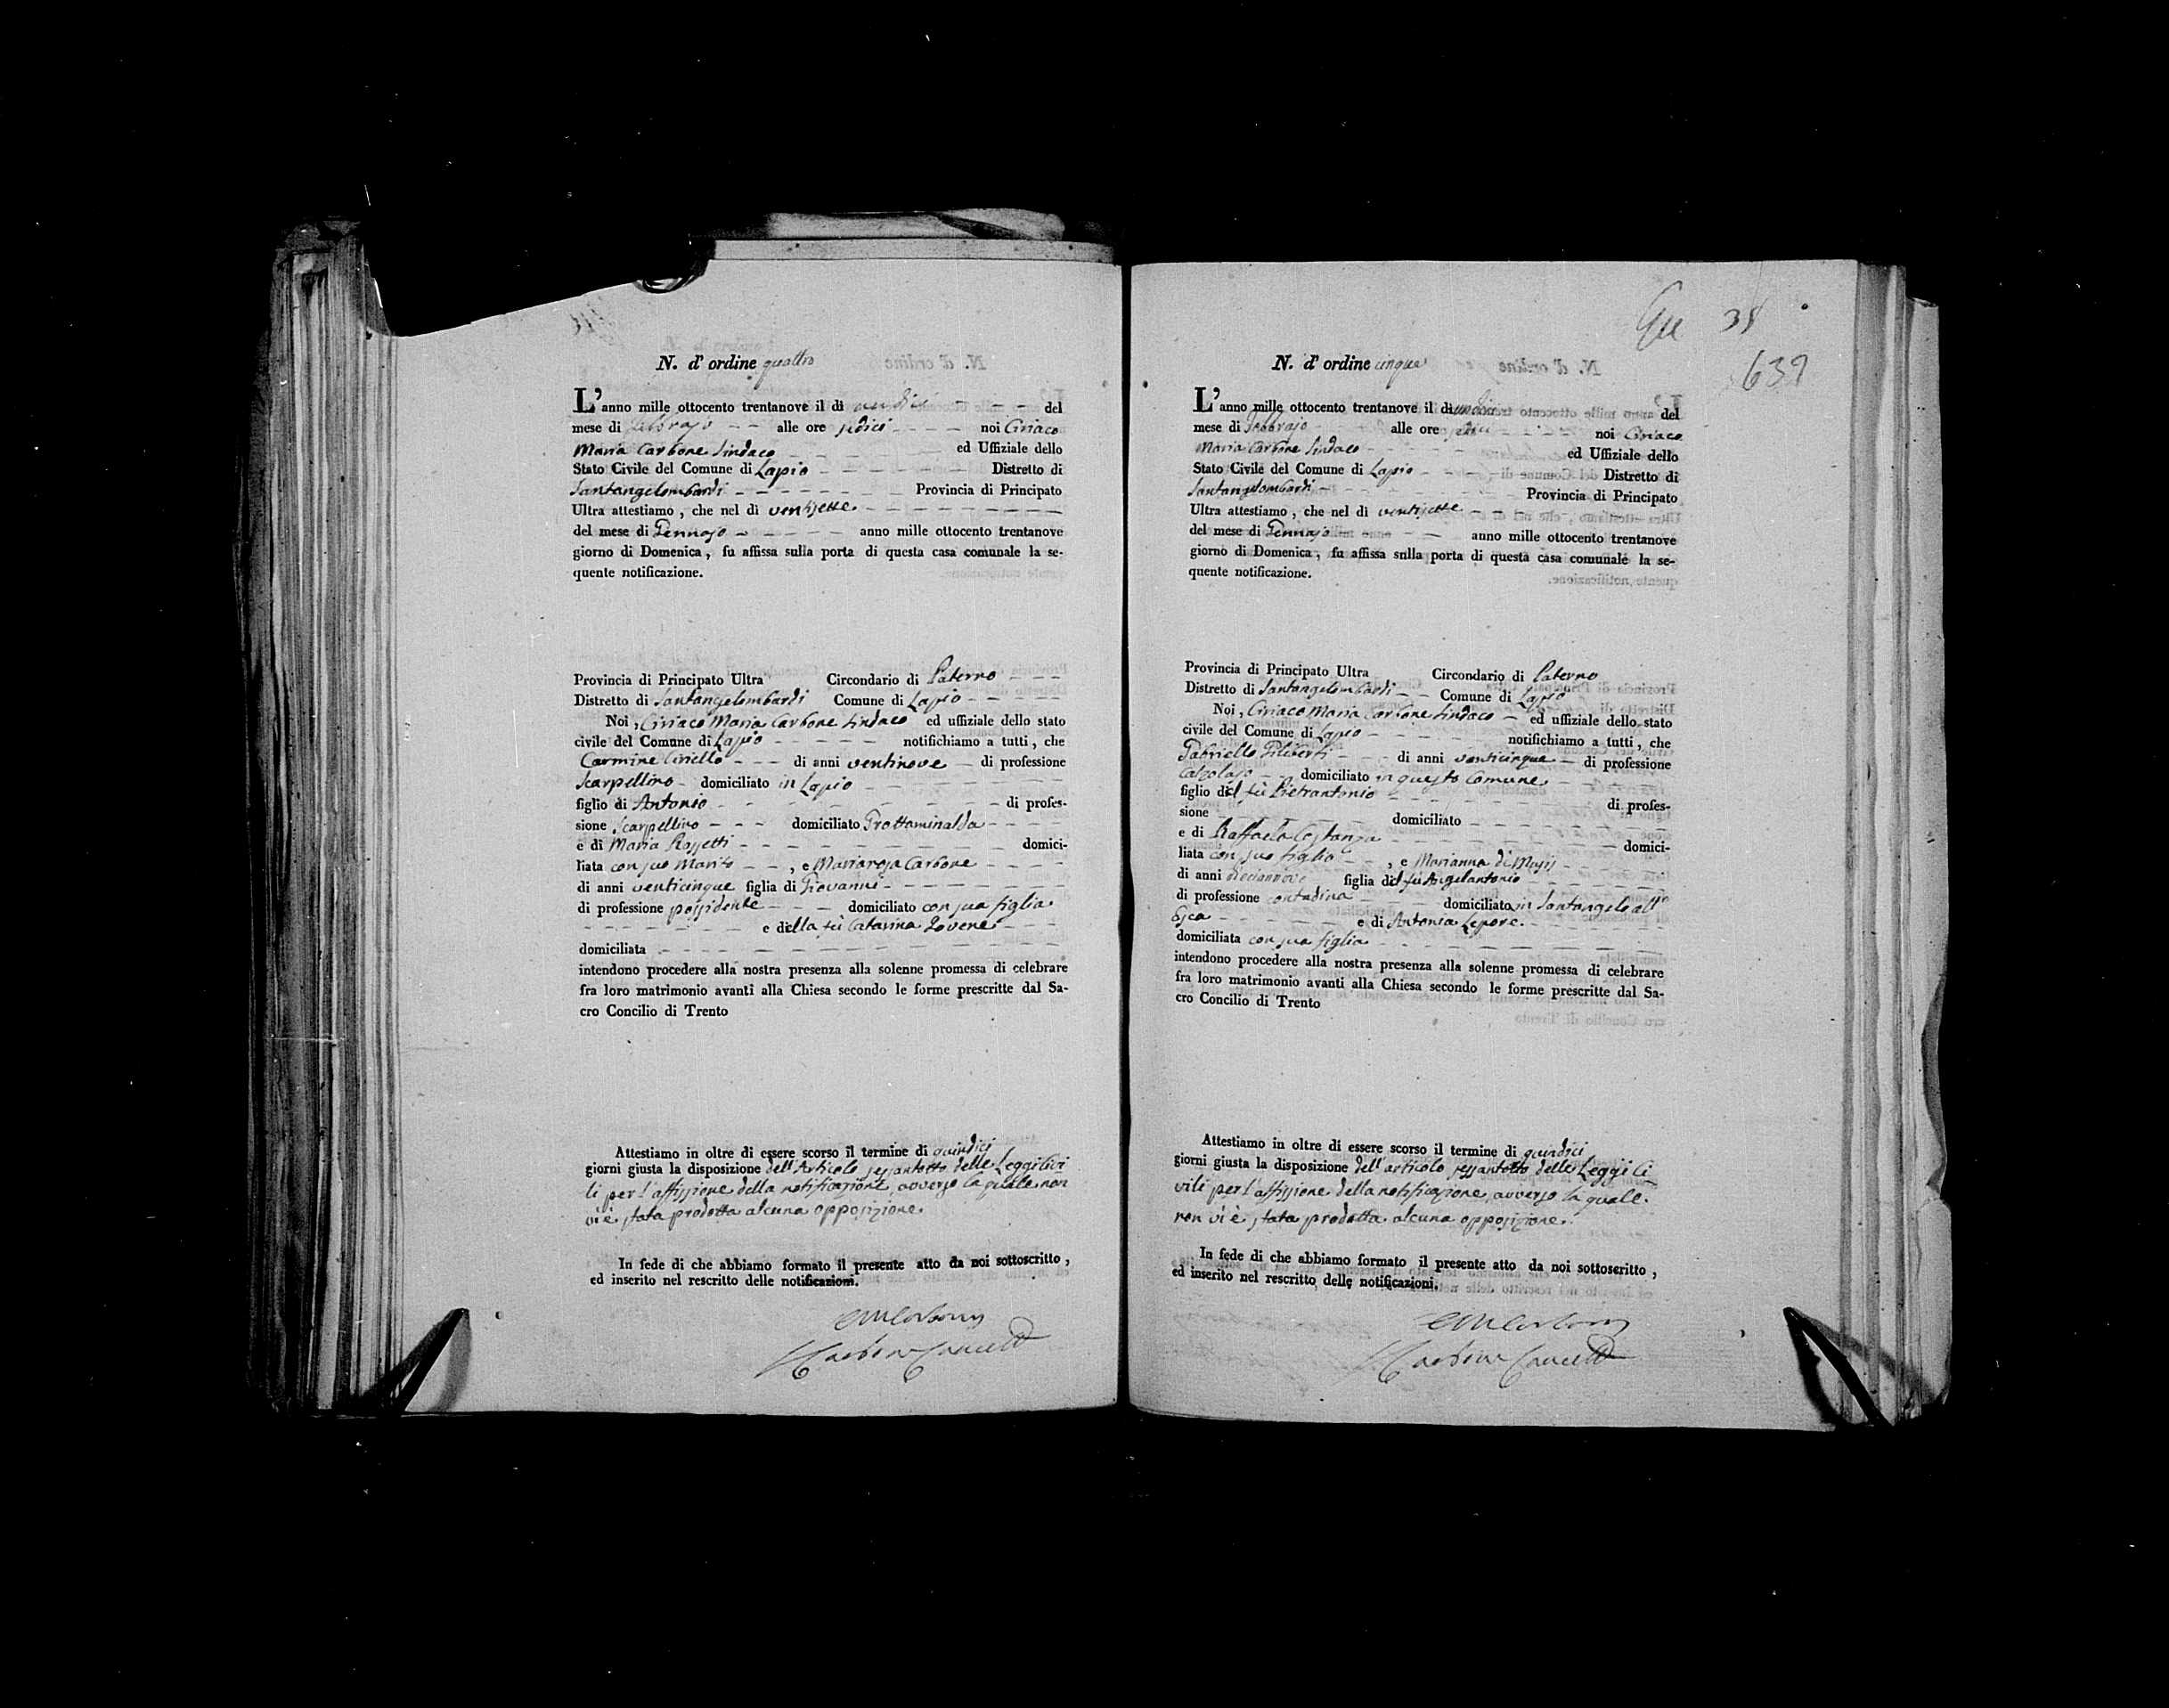 N. d' ordine quattro
L'anno mille ottocento trentanove il di undici del
mese di Febbrajo alle ore sedici noi Ciriaco
Maria Carbone Sindaco ed Uffiziale dello
Stato Civile del Comune di Lapio Distretto di
Santangelombardi Provincia di Principato
Ultra attestiamo, che nel di ventisette
del mese di Gennajo anno mille ottocento trentanove
giorno di Domenica, fu affissa sulla porta di questa casa comunale la se-
quente notificazione.
Provincia di Principato Ultra Circondario di Paterno
Distretto di Santangelombardi Comune di Lapio
Noi, Ciriaco Maria Carbone Sindaco ed uffiziale dello stato
civile del Comune di Lapio notifichiamo a tutti, che
Carmine Ciriello di anni ventinove di professione
Scarpellino domiciliato in Lapio
figlio di Antonio di profes-
sione Scarpellino domiciliato Grottaminalda
e di Maria Rossetti domici-
liata con suo Marito, e Mariarosa Carbone
di anni venticinque figlia di Giovanni
di professione possidente domiciliato con sua figlia
e della fù Catarina Iovene
domiciliata
intendono procedere alla nostra presenza alla solenne promessa di celebrare
fra loro matrimonio avanti alla Chiesa secondo le forme prescritte dal Sa-
cro Concilio di Trento
Attestiamo in oltre di essere scorso il termine di quindici
giorni giusta la disposizione dell'Articolo sessantotto delle Leggi Civi
li per l'affissione della notificazione, avverso la quale non
vi è stata prodotta alcuna opposizione.
In fede di che abbiamo formato il presente atto da noi sottoscritto,
ed inserito nel rescritto delle notificazioni.
CMCarbone
Carbone
38
639
N. d' ordine cinque
L'anno mille ottocento trentanove il di undici del
mese di Febbrajo alle ore sedici noi Ciriaco
Maria Carbone Sindaco ed Uffiziale dello
Stato Civile del Comune di Lapio Distretto di
Santangelombardi Provincia di Principato
Ultra attestiamo, che nel di ventisette
del mese di Gennajo anno mille ottocento trentanove
giorno di Domenica, fu affissa snlla porta di questa casa comunale la se-
quente notificazione.
Provincia di Principato Ultra Circondario di Paterno
Distretto di Santangelombardi Comune di Lapio
Noi, Ciriaco Maria Carbone Sindaco ed uffiziale dello stato
civile del Comune di Lapio notifichiamo a tutti, che
Gabriello Filiberti di anni venticinque di professione
Calzolajo domiciliato in questo Comune
figlio del fù Pietrantonio di profes-
sione domiciliato
e di Raffaela Costanza domici-
liata con suo figlio, e Marianna di Masij
di anni diecinnove figlia del fù Angelantonio
di professione contadina domiciliato in Santangelo all'
Esca e di Antonia Lepore.
domiciliata con sua figlia
intendono procedere alla nostra presenza alla solenne promessa di celebrare
fra loro matrimonio avanti alla Chiesa secondo le forme prescritte dal Sa-
cro Concilio di Trento
Attestiamo in oltre di essere scorso il termine di quindici
giorni giusta la disposizione dell'articolo sessantotto delle Leggi Ci
vili per l'affissione della notificazione, avverso la quale
non vi è stata prodotta alcuna opposizione.
In fede di che abbiamo formato il presente atto da noi sottoscritto,
ed inserito nel rescritto delle notificazioni.
CMCarbone
Carbone